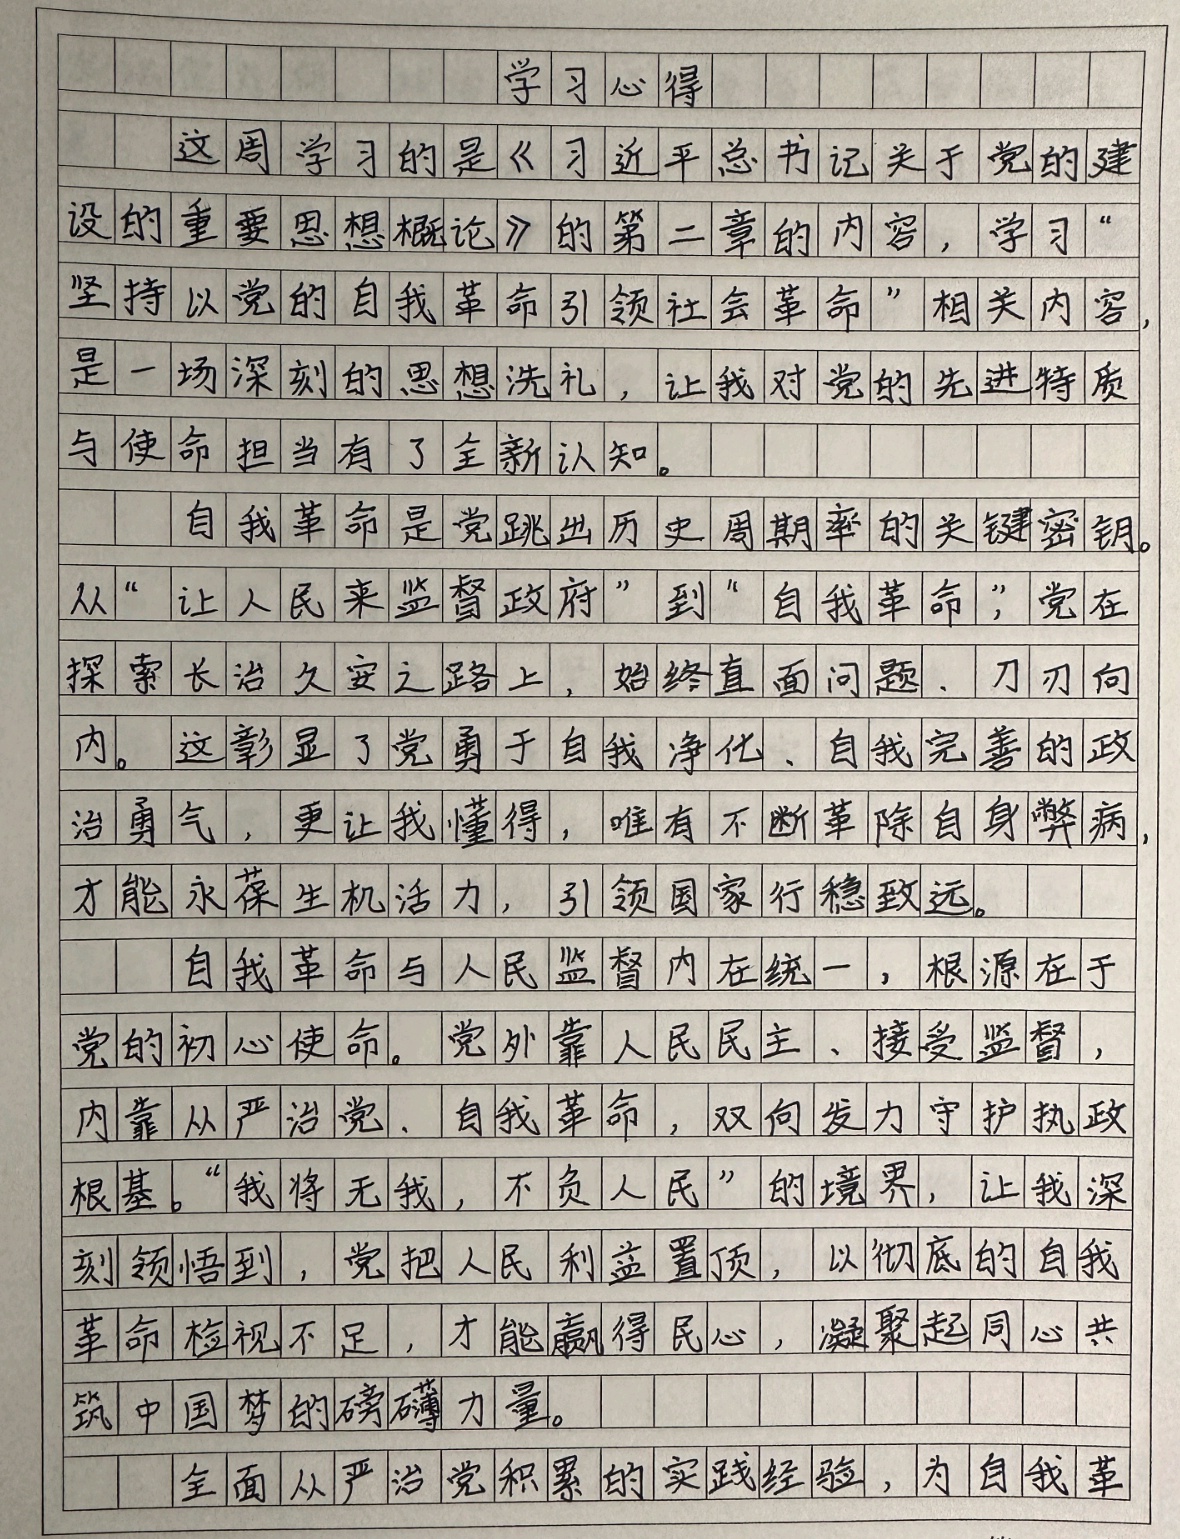 学习心得
这周学习的是《习近平总书记关于党的建
设的重要思想概论》的第二章的内容，学习“
坚持以党的自我革命引领社会革命”相关内容，
是一场深刻的思想洗礼，让我对党的先进特质
与使命担当有了全新认知。
自我革命是党跳出历史周期率的关键密钥。
从“让人民来监督政府”到“自我革命”，党在
探索长治久安之路上，始终直面问题、刀刃向
内。这彰显了党勇于自我净化、自我完善的政
治勇气，更让我懂得，唯有不断革除自身弊病，
才能永葆生机活力，引领国家行稳致远。
自我革命与人民监督内在统一，根源在于
党的初心使命。党外靠人民民主、接受监督，
内靠从严治党、自我革命，双向发力守护执政
根基。“我将无我，不负人民”的境界，让我深
刻领悟到，党把人民利益置顶，以彻底的自我
革命检视不足，才能赢得民心，凝聚起同心共
筑中国梦的磅礴力量。
全面从严治党积累的实践经验，为自我革